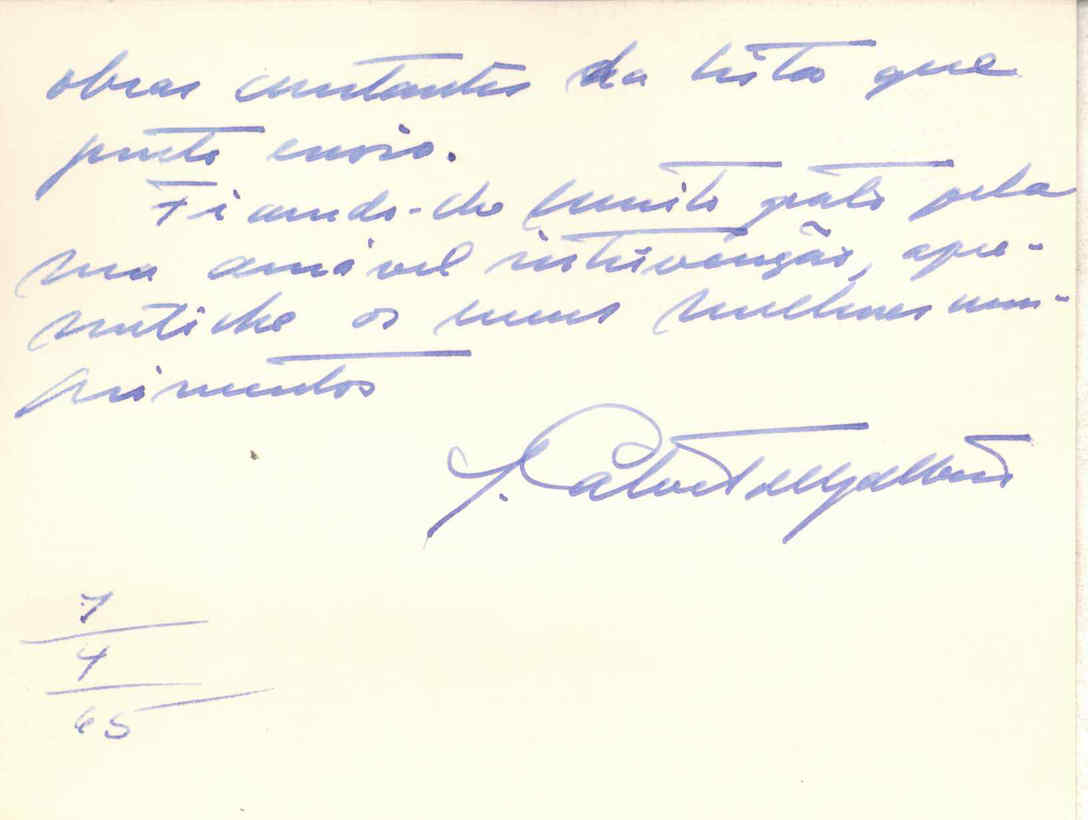 obras constantes da lista que
junto envio.
Ficando-lhe muito grato pela
sua amável intervenção, apre-
senta-lhe os meus melhores cum-
primentos
J. Calvet de Magalhães
7
4
65